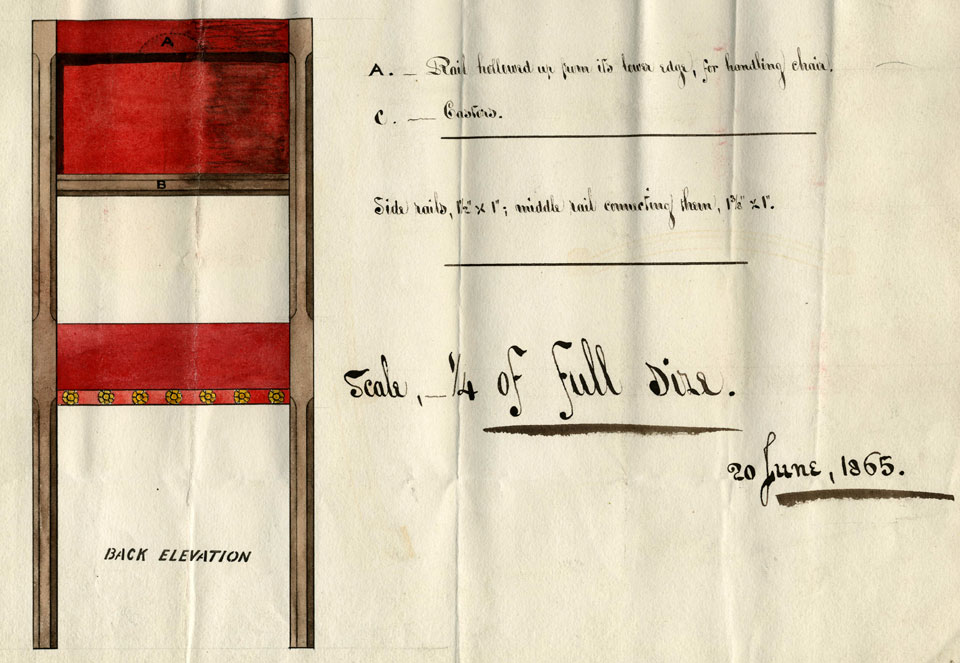 A
B
BACK ELEVATION
A. — Rail hollowed up from its lower edge, for handling chair.
C. — Castors.
Side rails, 1½" x 1"; middle rail connecting them, 1⅜" x 1".
Scale, — ¼ of full size.
20 June, 1865.